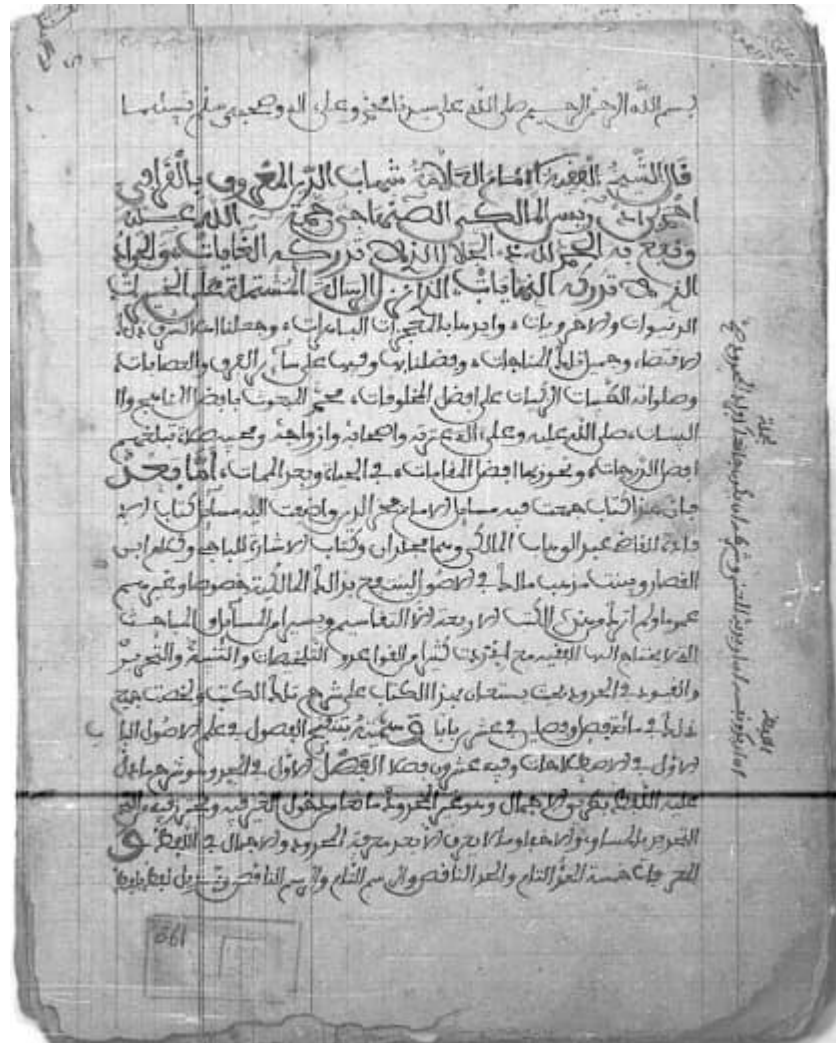 بسم الله الرحمن الرحيم صلى الله على سيدنا محمد وعلى اله وصحبه وسلم تسليما
قال الشيخ الفقيه الامام العلامة شهاب الدين المعروف بالقرافي
احمد بن ادريس المالكي الصنهاجي رحمة الله عليه
ونفع به الحمد لله ذي الجلال الذي لا تدركه الغايات، والجواد
الذي لا تدركه النهايات، الذي من الرسالة المشتملة على الخيرات
الدنيوات والاخرويات، وايدها بالمعجزات الباهرات، وجعلنا اهلا
وجميل تلك المناجات، وفضلنا بها وفيها على سائر الفرق والعصابات،
وصلواته الطيبات الزكيات على افضل المخلوقات، محمد المبعوث بافضل المناهج وا
البينات، صلى الله عليه وعلى اله عترته واصحابه وازواجه ومحبيه صلاة تبلغهم
افضل الدرجات، ونحوز بها افضل المقامات، في الحياة وبعد الممات، اما بعد
فان هذا كتاب جمعت فيه مسايل الامام فخر الدين واضفت اليه مسايل كتاب الا
فادة للقاضي عبد الوهاب المالكي وهما مجلدان وكتاب الاشارة للباجي وكلام ابن
القصار وبينت مذهب مالك في الاصول لينتفع بذلك المالكية خصوصا وغيرهم
عموما ولم اترك من هذه الكتب الاربعة الا التقاسيم ويسيرا من المسايل والمباحث
التي لا يحتاج اليها الفقيه مع اني زدت كثيرا من القواعد والتلخيصات والتنبيه والتحرير
والقيود في الحدود بحيث يستعان بهذا الكتاب على شرح تلك الكتب ولخصت جميع
ذلك في مائة فصل وفصلين في عشرين بابا وسميته تنقيح الفصول في علم الاصول البا
ب
الاول في الاصطلاحات وفيه عشرون فصلا الفصل الاول في الحد وهو شرح ما دل
عليه اللفظ بطريق الاجمال وهو غير المحدود
التحديد بالمساوي والاخفى وما لا يعرف الا بعد معرفة المحدود والاجمال في اللفظ و
المعرفات خمسة الحد التام والحد الناقص والرسم التام والرسم الناقص وتبديل لفظ بلفظ
190